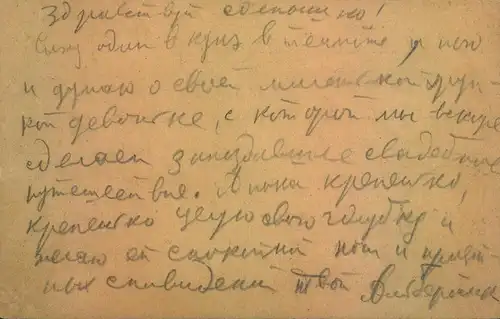 Здравствуй
Сижу один в купэ в темноте и пью
и думаю о своей миленькой
кой девочке, с которой мы вскоре
сделаем запоздавшее свадебное
путешествие. А пока крепенько,
крепенько целую свою голубку и
желаю ей спокойной ночи и прият-
ных сновидений твой